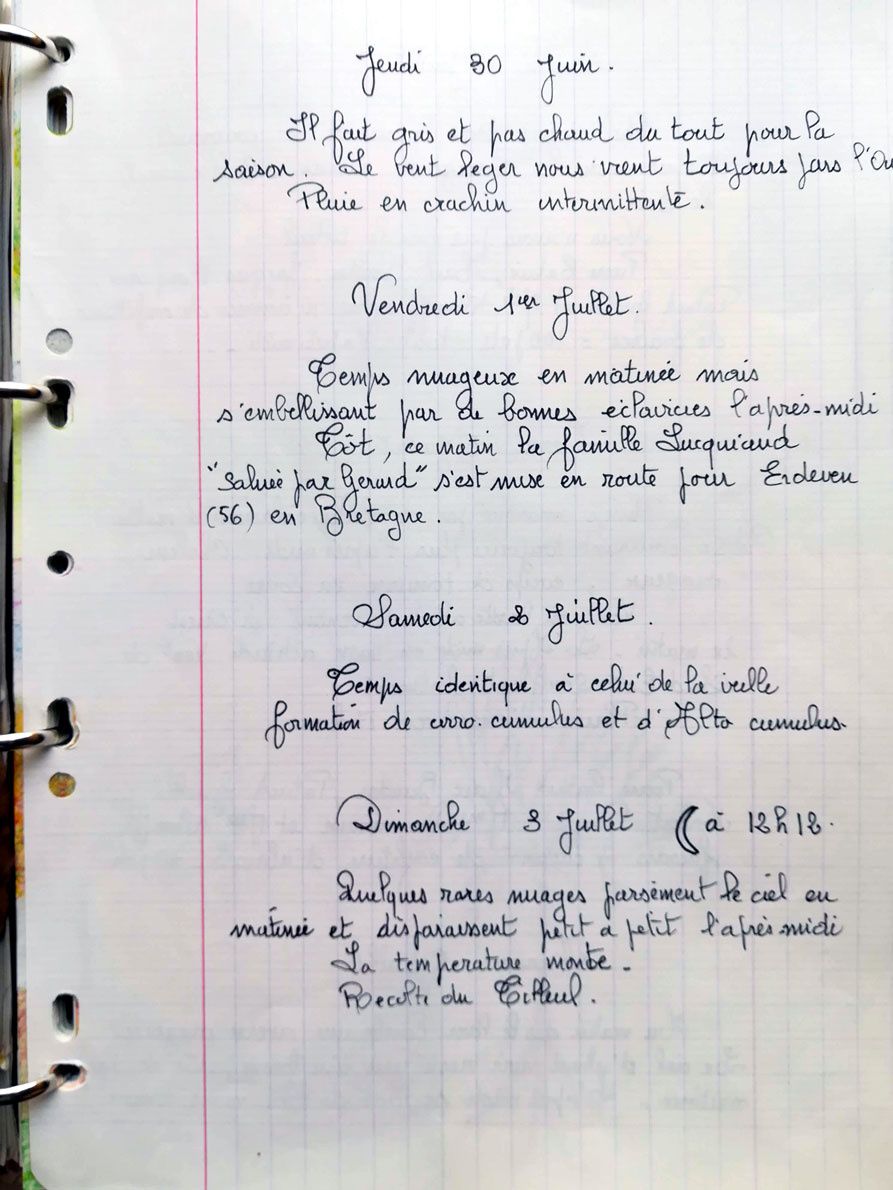 Jeudi 30 Juin.
Il fait gris et pas chaud du tout pour la
saison. Le vent leger nous vient toujours pars l'Ou
Pluie en crachin intermittente.
Vendredi 1er Juillet.
Temps nuageux en matinée mais
s'embellissant par de bonnes eclaircies l'après-midi
Tôt, ce matin la famille Lucquiaud
"saluée par Gerard" s'est mise en route pour Erdeven
(56) en Bretagne.
Samedi 2 Juillet.
Temps identique à celui de la veille
formation de cirro. cumulus et d'Alto cumulus.
Dimanche 3 Juillet à 12h12.
Quelques rares nuages parsèment le ciel en
matinée et disparaissent petit a petit l'après-midi
La temperature monte.
Recolte du Tilleul.